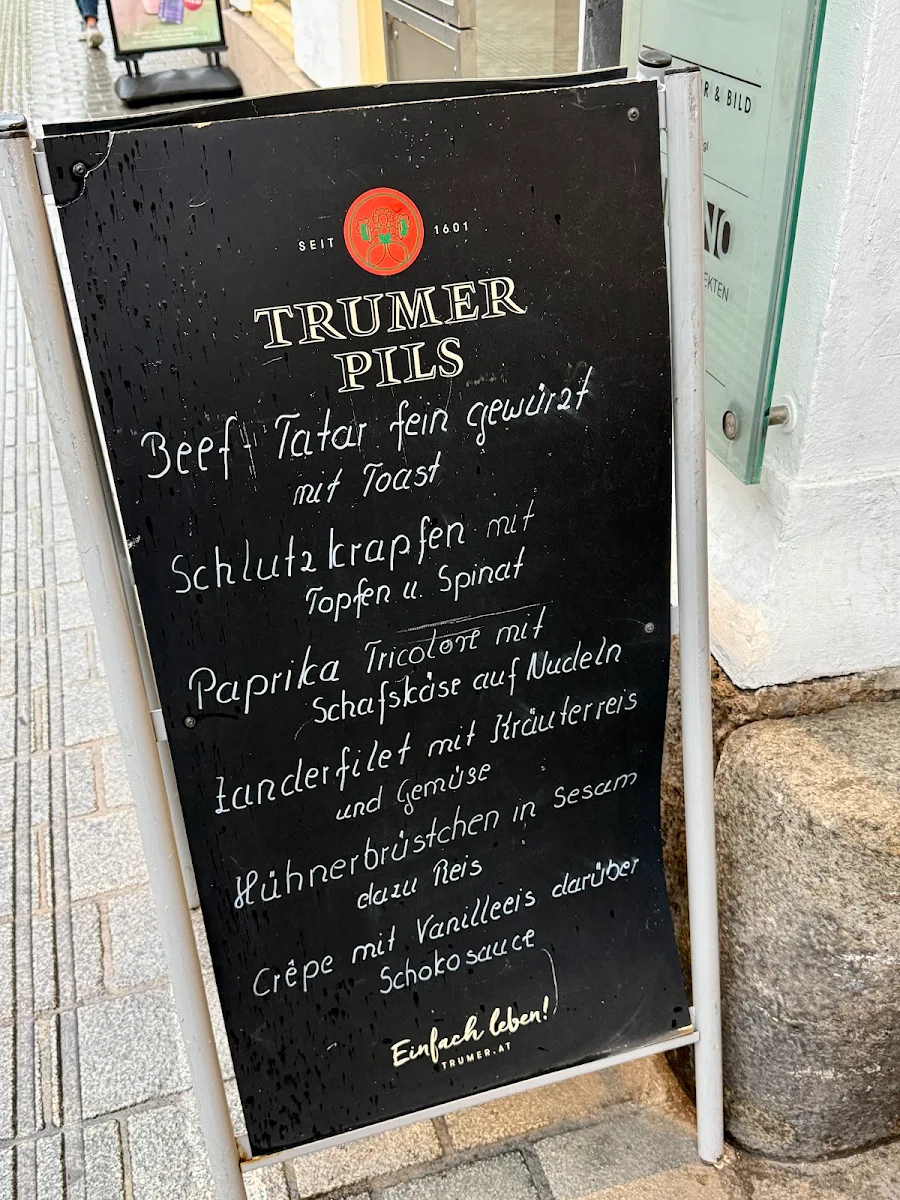 R & BILD
NO
EKTEN
SEIT 1601
TRUMER
PILS
Beef-Tatar fein gewürzt
mit Toast
Schlutzkrapfen mit
Topfen u. Spinat
Paprika Tricolore mit
Schafskäse auf Nudeln
Zanderfilet mit Kräuterreis
und Gemüse
Hühnerbrüstchen in Sesam
dazu Reis
Crêpe mit Vanilleeis darüber
Schokosauce
Einfach leben!
TRUMER.AT